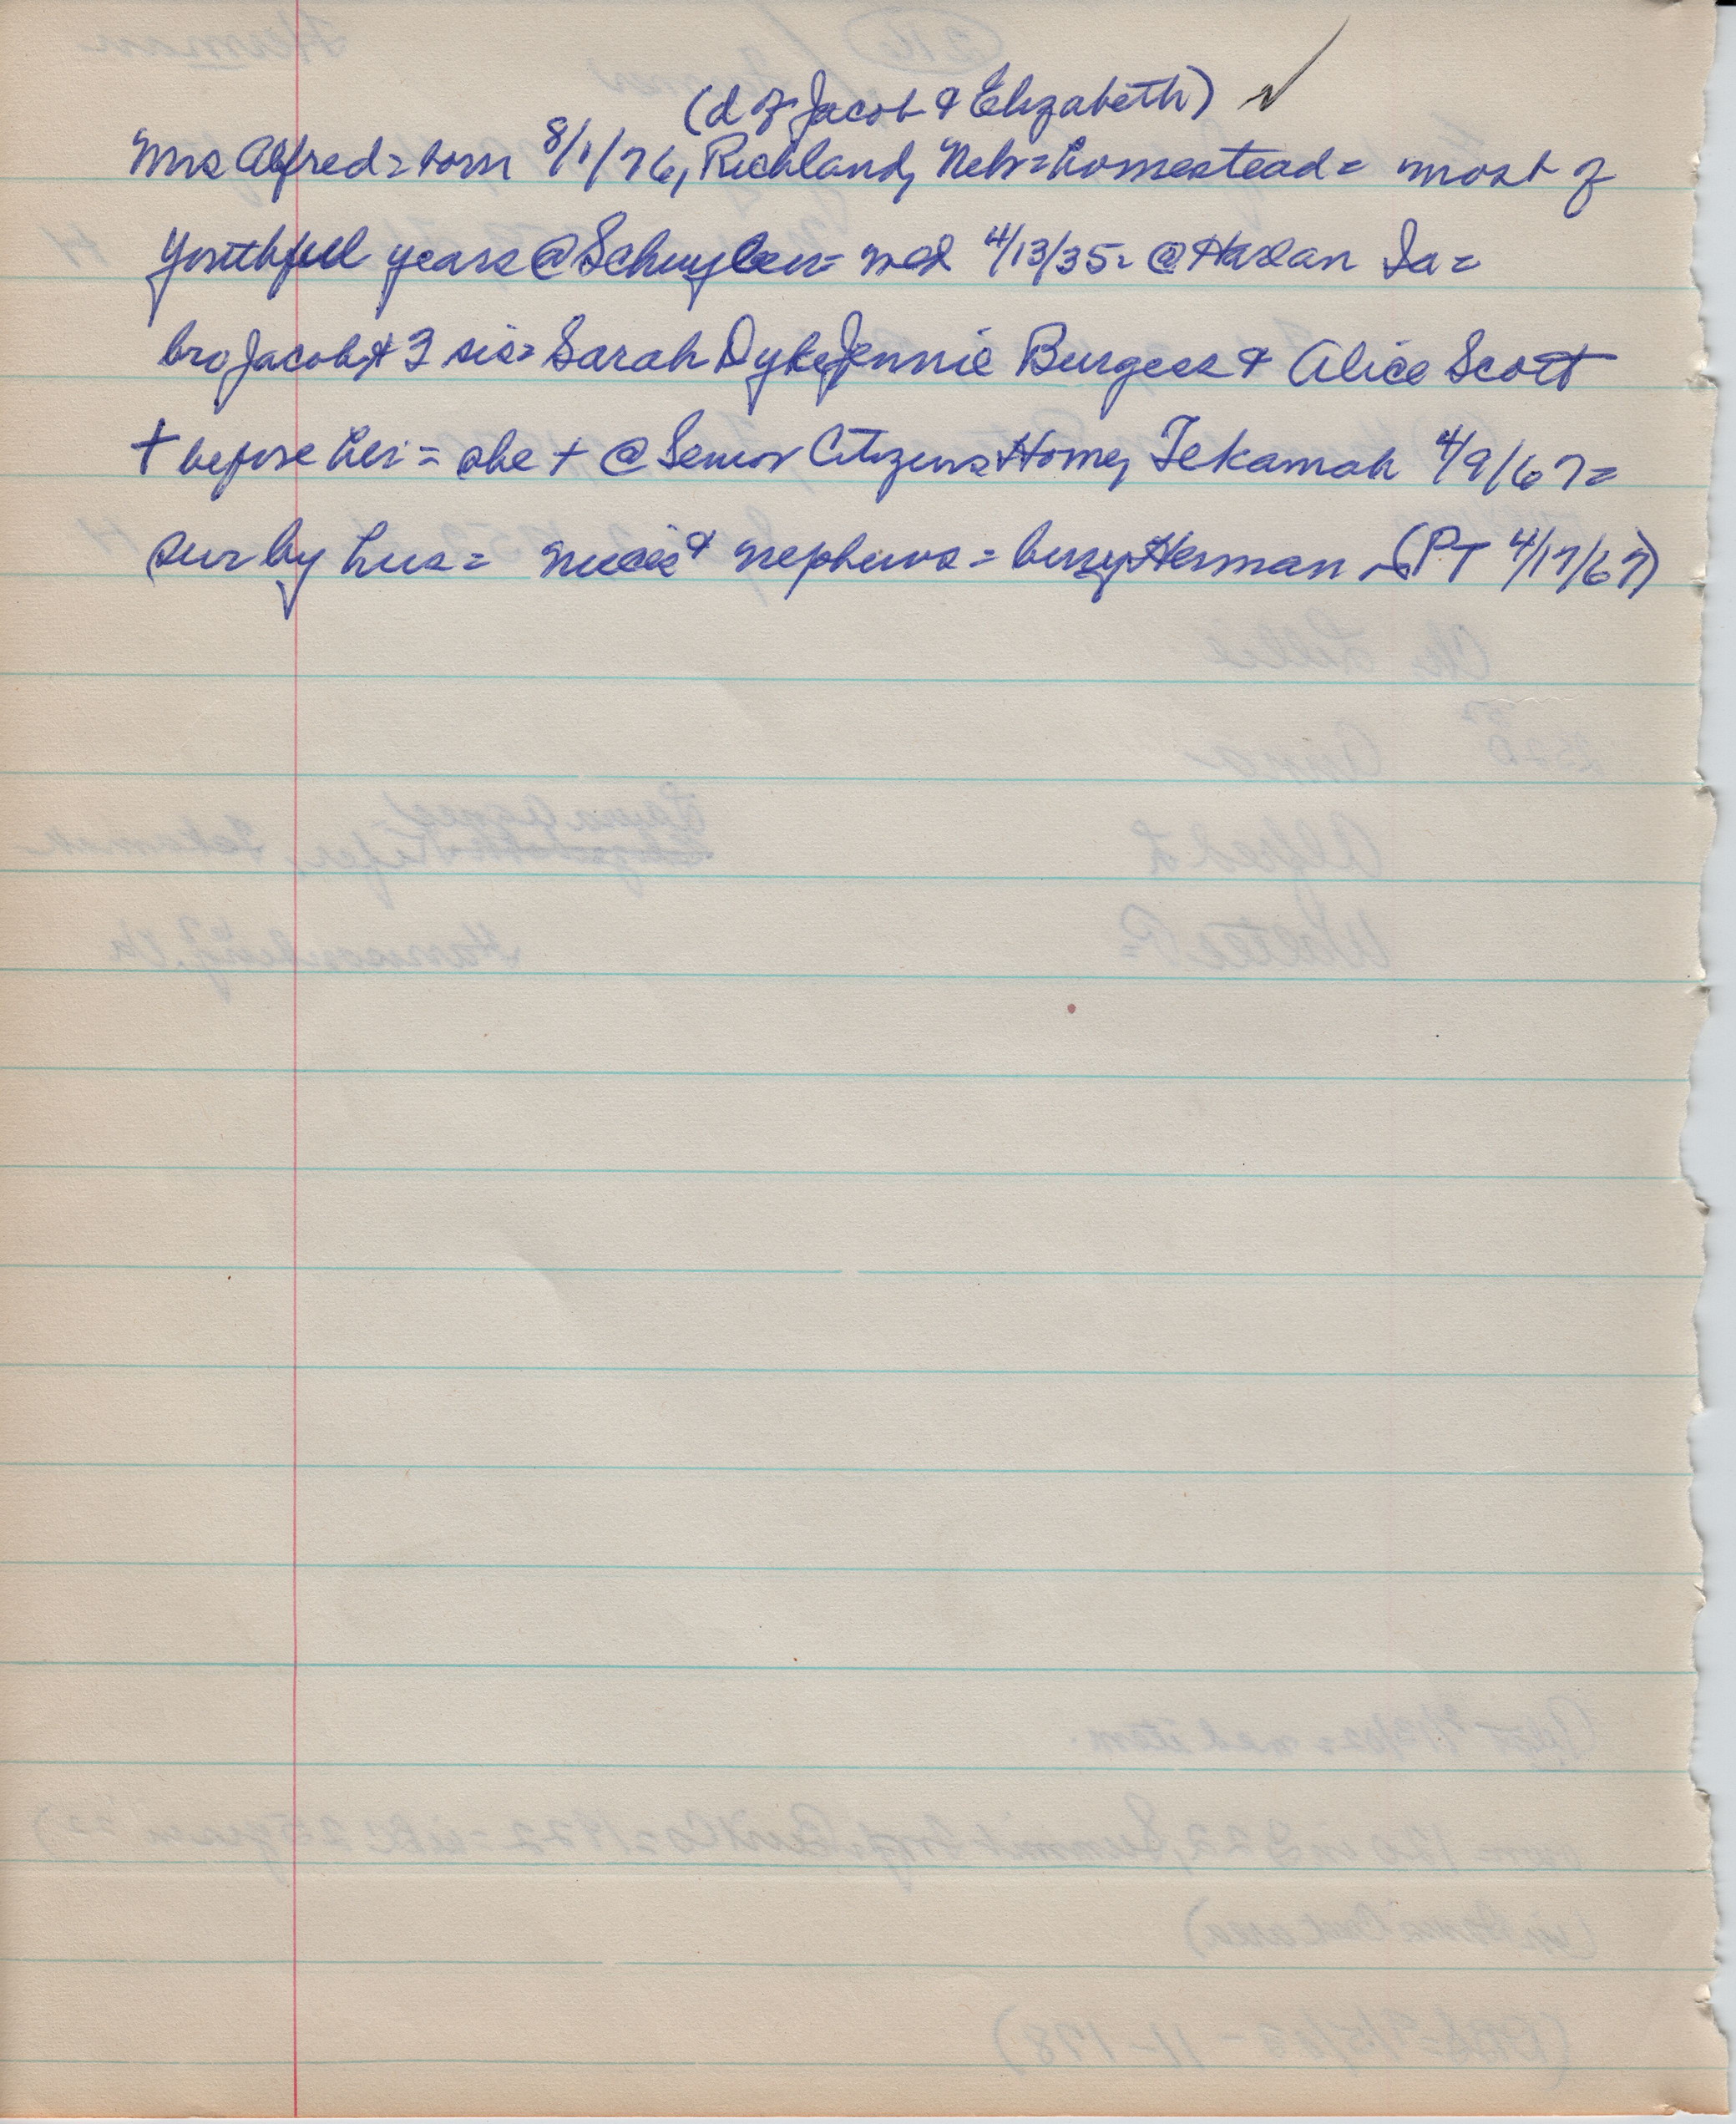 (d of Jacob & Elizabeth) ✓
Mrs Alfred = born 8/1/76, Richland, Nebr = homestead = most of
youthful years @ Schuyler = md 4/13/35 = @ Harlan Ia =
bro Jacob, & 3 sis = Sarah Dyke, Jennie Burgess & Alice Scott
+ before her = she + @ Senior Citizens Home, Tekamah 4/9/67 =
sur by hus = nieces & nephews = bury Herman (PT 4/17/67)